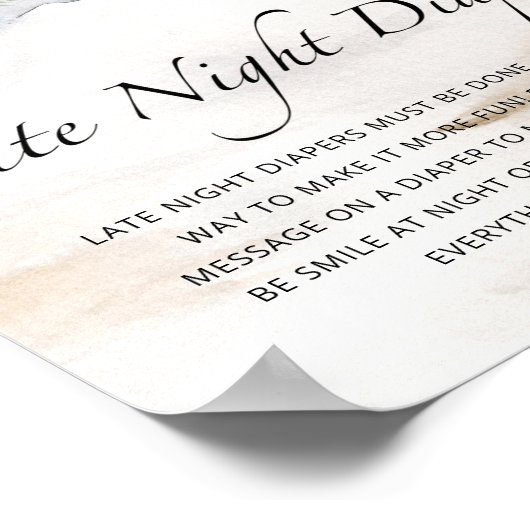 ate Night Dia
LATE NIGHT DIAPERS MUST BE DONE
WAY TO MAKE IT MORE FUN!
MESSAGE ON A DIAPER TO
BE SMILE AT NIGHT OF
EVERYTH